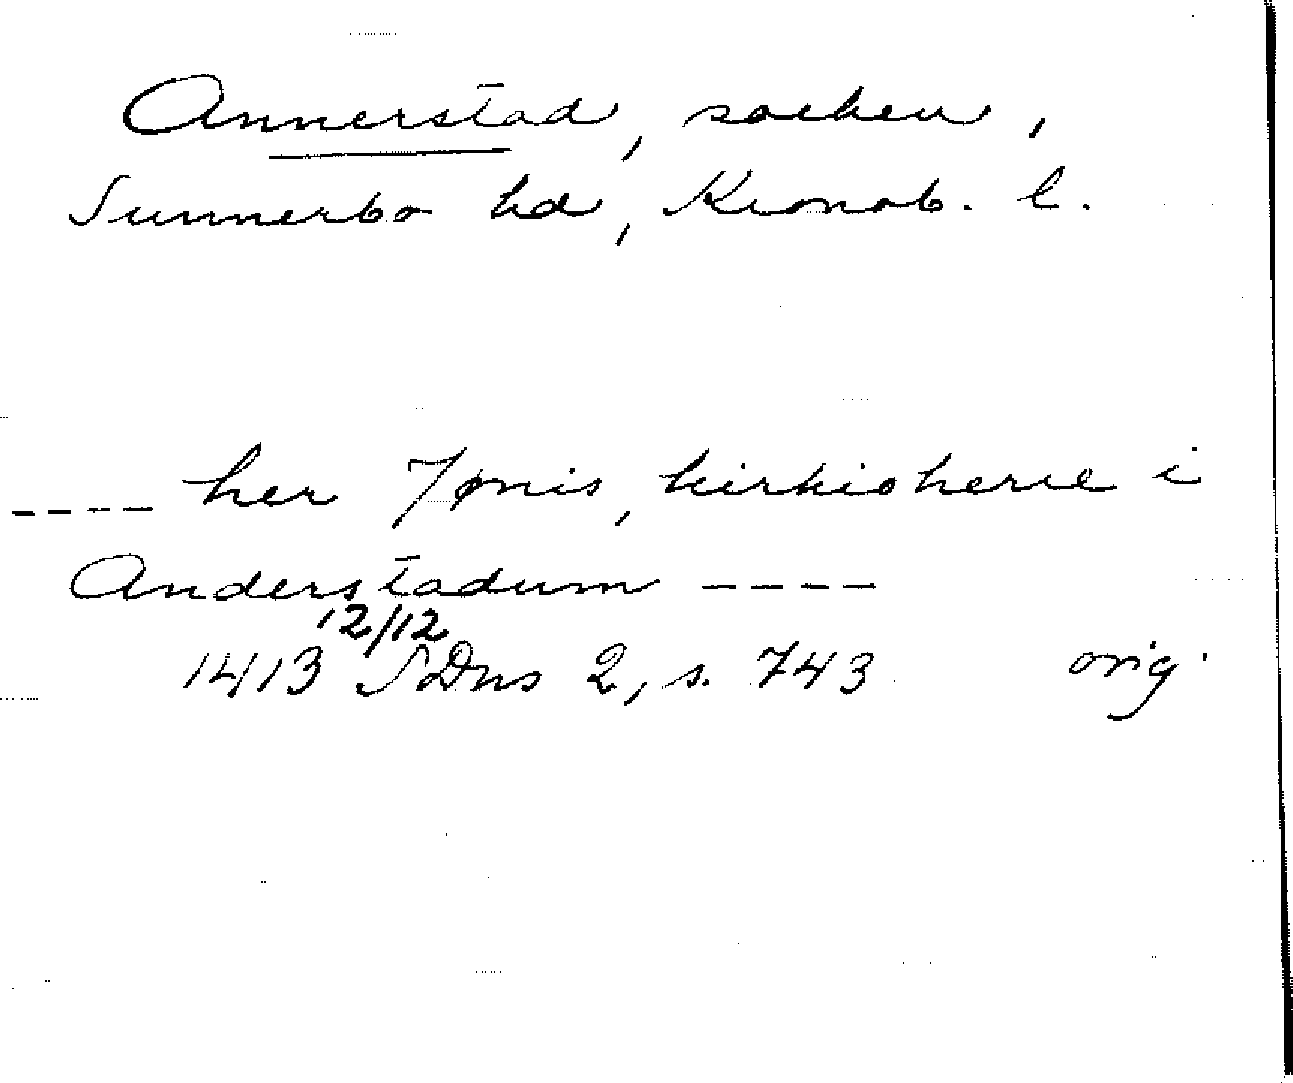 Annerstad, socken,
Sunnerbo hd, Kronob. l.
---- her Jønis, kirkioherre i
Anderstadum ----
12/12
1413 SDns 2, s. 743 orig.